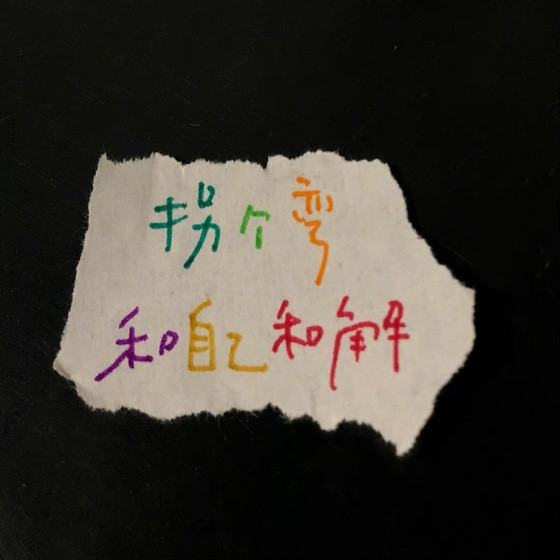 拐个弯
和自己和解